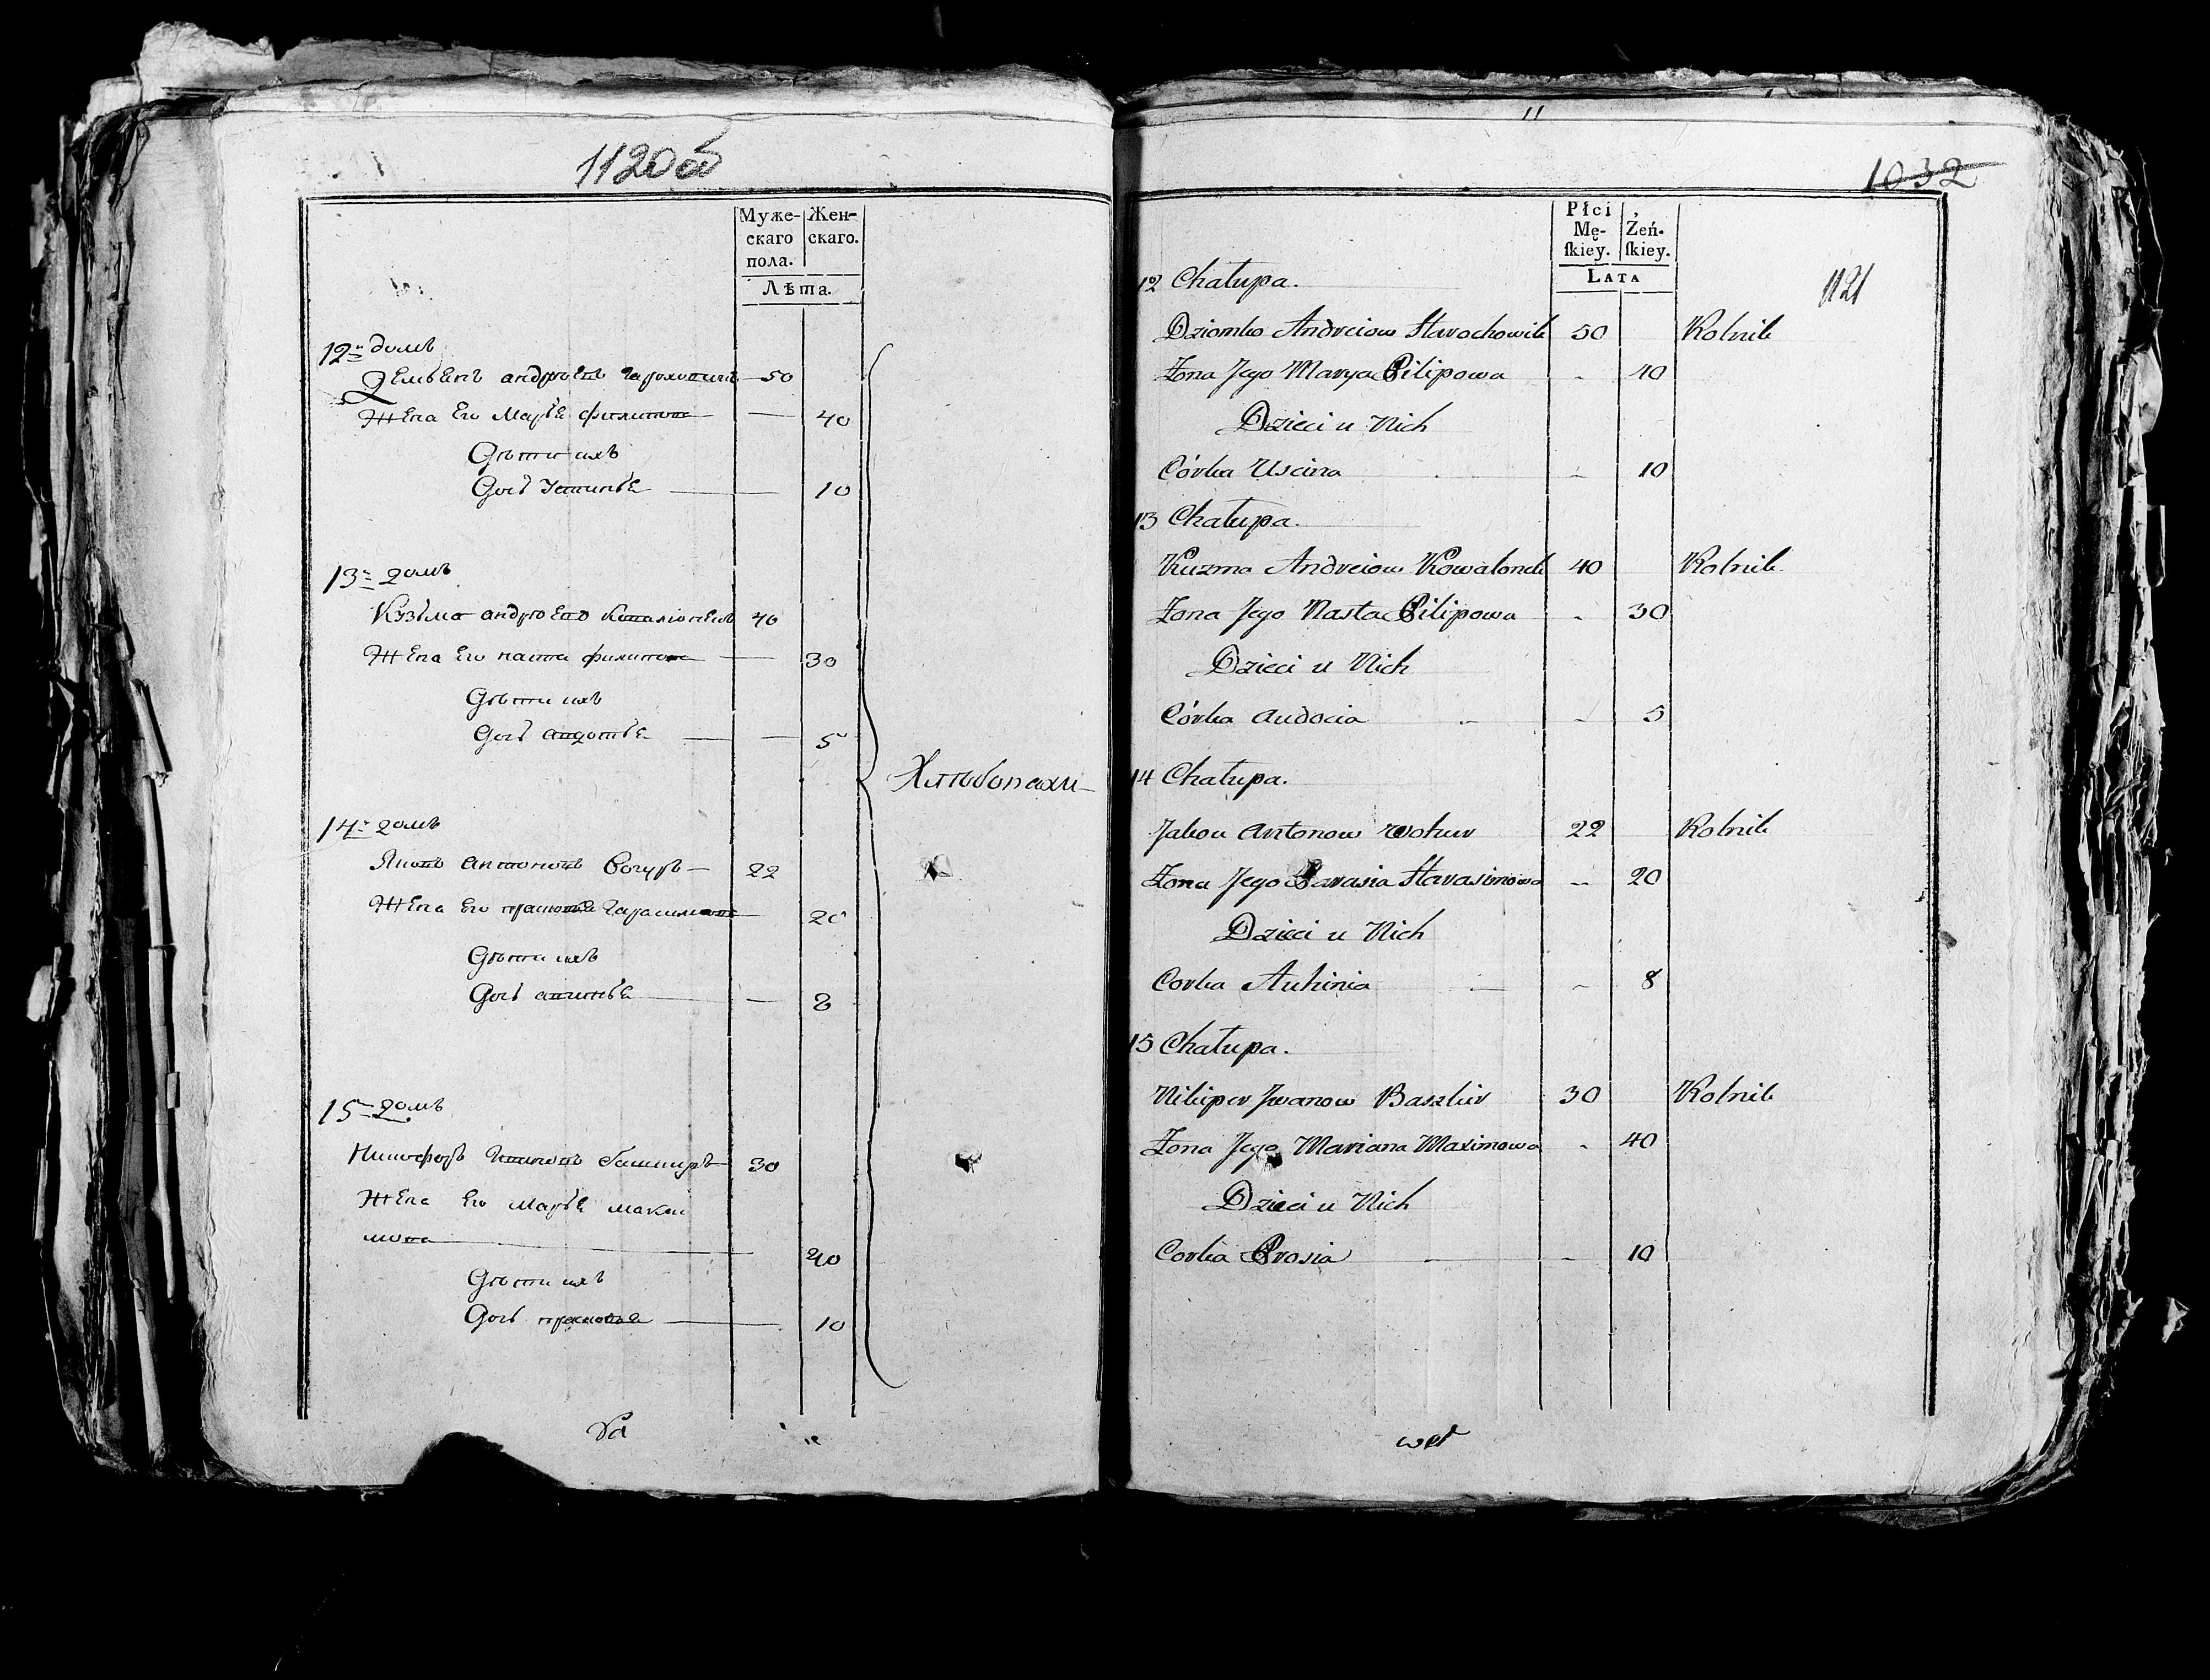 1120об
Муже-
скаго
пола.
Жен-
скаго.
Лѣта.
12й домъ
Демьенъ андрѣевъ 50
Жена Его Марья филипова 40
Дѣти ихъ
Дочь Устинья 10
13й домъ
Кузьма андрѣевъ 40
Жена Его наста филипова 30
Дѣти ихъ
Дочь авдотья 5
Хлѣбопахи
14й домъ
Яковъ антоновъ 22
Жена Его прасковья гарасимова 20
Дѣти ихъ
Дочь 8
15й домъ
Никифоръ Ивановъ башкиръ 30
Жена Его Марья макси
мова 40
Дѣти ихъ
Дочь прасковья 10
11
1032
1121
Płci
Mę-
ſkiey.
Żeń-
ſkiey.
LATA
12 Chałupa.
Dziomko Andreiow Harochowik 50 Rolnik
Żona Jego Marya Pilipowa - 40
Dzieci u Nich
Córka Uscina - 10
13 Chałupa.
Kuzma Andreiow Kowalonek 40 Rolnik
Żona Jego Nasta Pilipowa - 30
Dzieci u Nich
Córka Audocia - 5
14 Chałupa.
Jakow Antonow Wohur 22 Rolnik
Żona Jego Parasia Harasimowa - 20
Dzieci u Nich
Corka Auhinia - 8
15 Chałupa.
Nikiper Jwanow Baszkir 30 Rolnik
Żona Jego Mariana Maximowa - 40
Dzieci u Nich
Corka Prosia - 10